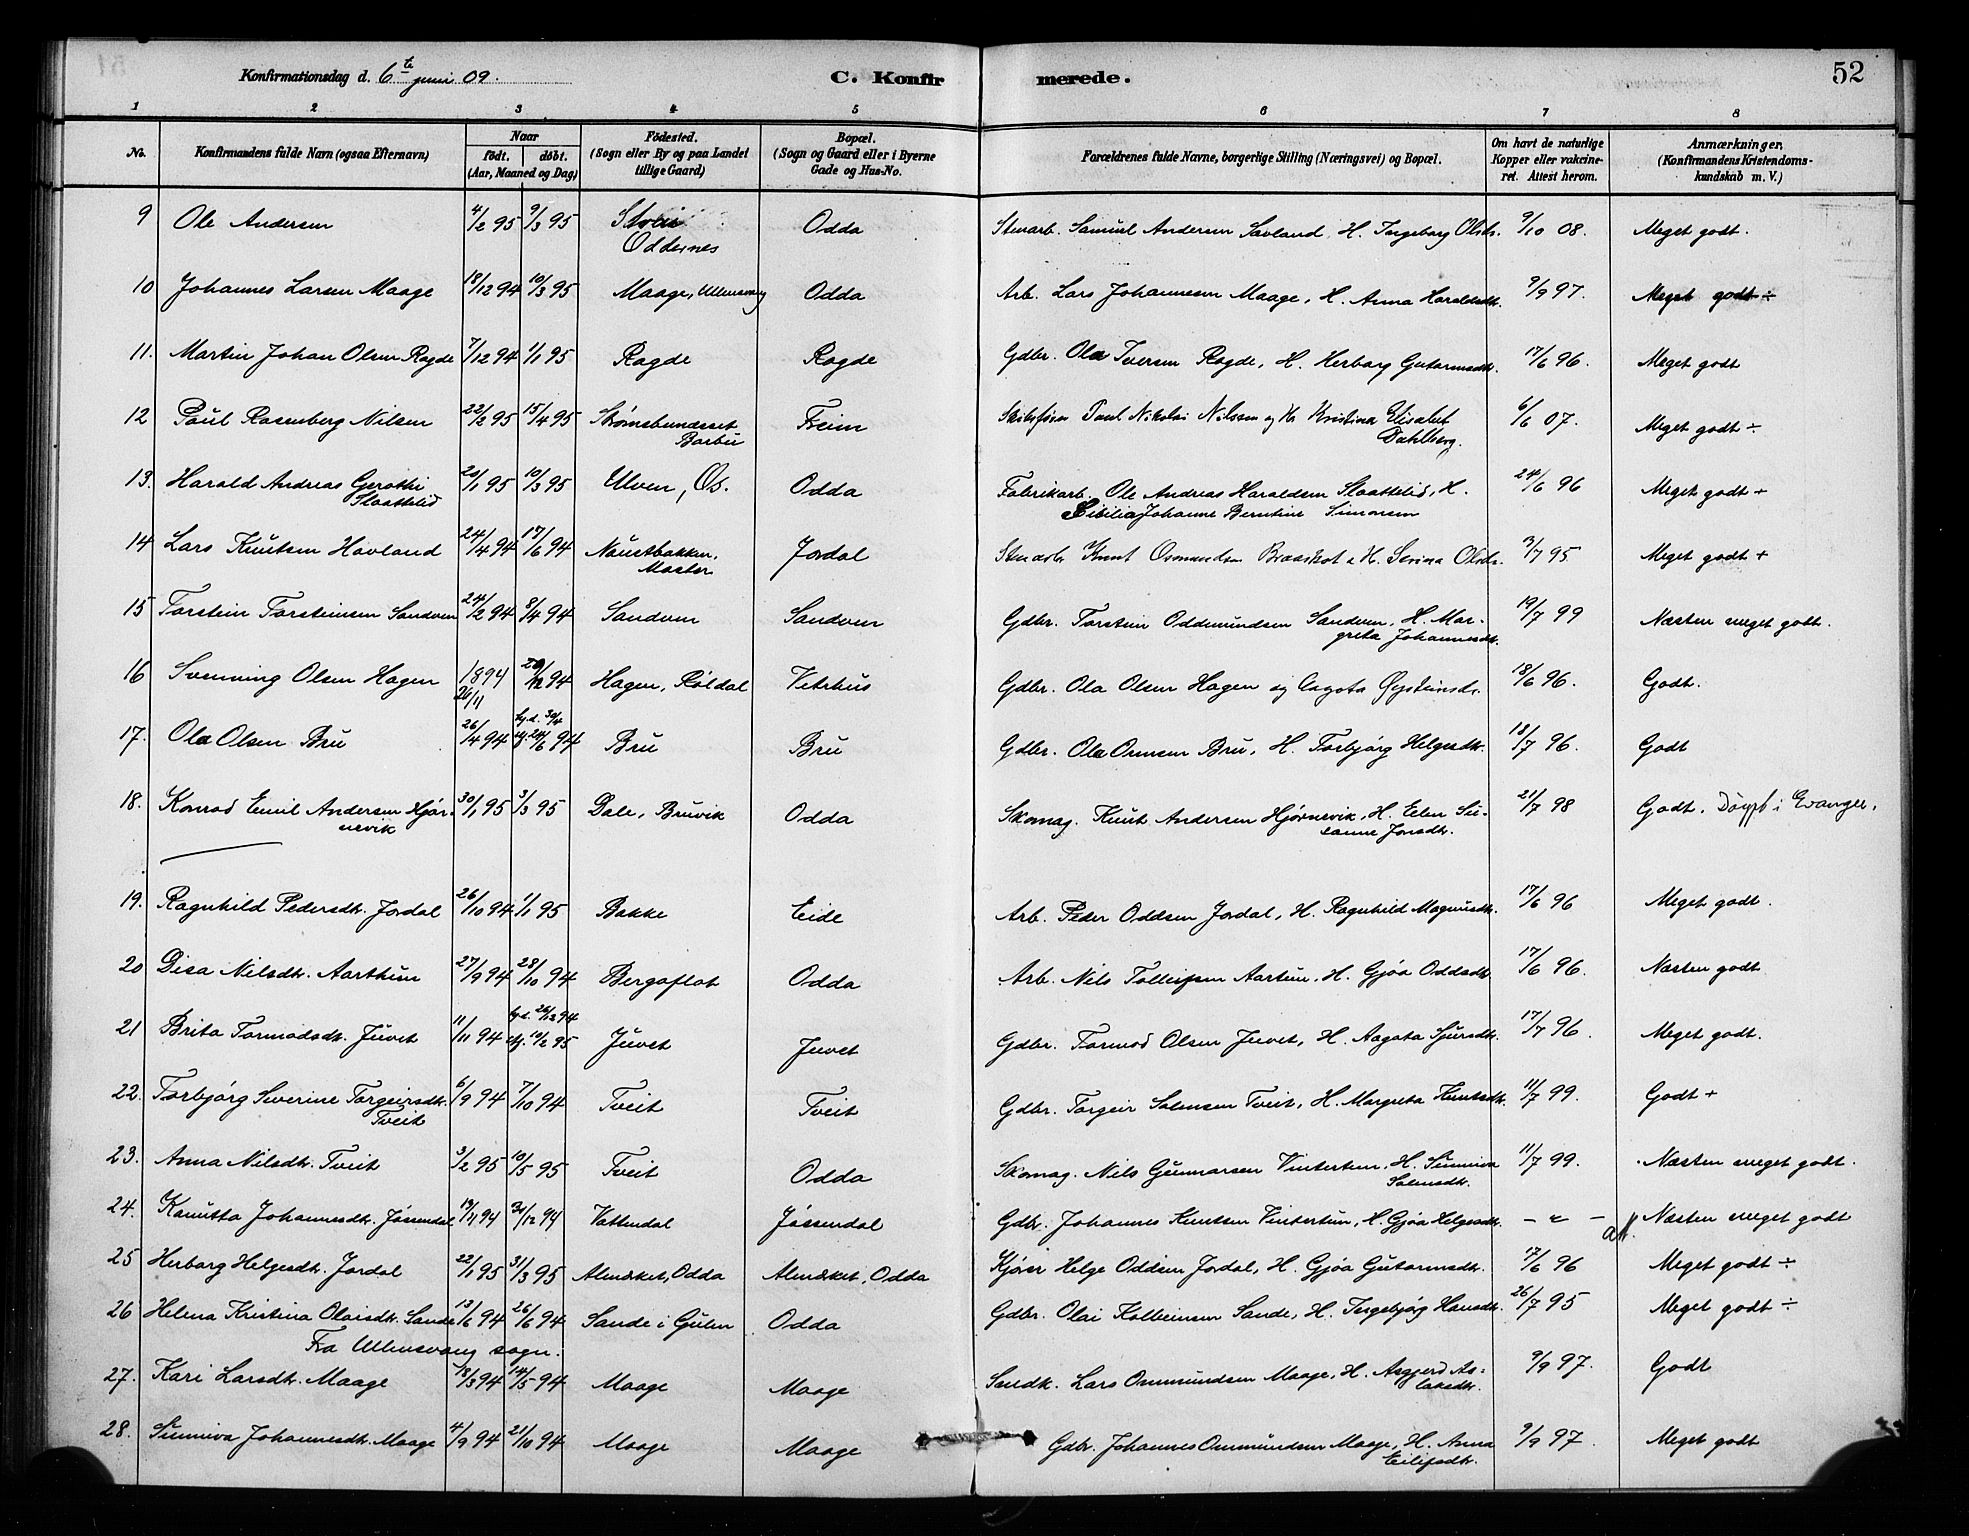 Konfirmationsdag d. 6te juni 09.
C. Konfirmerede.
52
1 2 3 4 5 6 7 8
No.
Konfirmandens fulde Navn (ogsaa Efternavn)
Naar
födt. döbt.
(Aar, Maaned og Dag)
Födested.
(Sogn eller By og paa Landet
tillige Gaard)
Bopæl.
(Sogn og Gaard eller i Byerne
Gade og Hus-No.
Forældrenes fulde Navne, borgerlige Stilling (Næringsvei) og Bopæl.
Om havt de naturlige
Kopper eller vakcine-
ret. Attest herom.
Anmærkninger,
(Konfirmandens Kristendoms-
kundskab m. V.)
9 Ole Andersen 4/2 95 9/3 95 Oddernes Odda Stenarb. Samuel Andersen Savland, H. Ingeborg Olsdr. 9/10 08. Meget godt.
10 Johannes Larsen Maage 18/12 94 10/3 95 Maage, Ullensvang Odda Arb. Lars Johannesen Maage, H. Anna Haraldsdtr. 9/9 97. Meget godt ÷
11. Martin Johan Olsen Ragde 7/12 94 1/1 95 Ragde Ragde Gdbr. Ola Iversen Ragde, H. Herborg Gutormsdtr. 17/6 96. Meget godt
12 Paul Rosenberg Nilsen 22/2 95 15/4 95 Strømsbuneset
Barbu Freim Skibsfører Paul Nikolai Nilssen og H. Kristina Elisabet
Dahlberg. 6/6 07. Meget godt ÷
13. Harald Andreas Gerothi
Slaattelid 20/1 95 10/3 95 Ulven, Os. Odda Fabrikarb. Ole Andreas Haraldsen Slaattelid, H.
Sisilia Johanne Berntine Simonsen 24/6 96 Meget godt +
14 Lars Knutsen Havland 24/4 94 17/6 94 Naustbakken,
Moster Jordal Stenarb. Knut Osmundsen H. Serina Olsdr. 3/7 95 Meget godt +
15 Torstein Torsteinsen Sandven 24/2 94 8/4 94 Sandven Sandven Gdbr. Torstein Oddmundsen Sandven, H. Mar-
greta Johannesdtr. 19/7 99 Næsten meget godt.
16 Svenning Olsen Hagen 1894
26/11 26/12 94 Hagen, Røldal Vetrhus Gdbr. Ola Olsen Hagen og Øysteinsdr. 18/6 96. Godt.
17. Ola Olsen Bru 26/4 94 hj.d. 30/4
94 Bru Bru Gdbr. Ola Ormsen Bru, H. Torbjørg Helgesdtr. 18/7 96. Godt
18. Konrad Emil Andersen Hjør-
nevik 30/1 95 3/3 95 Dale, Bruvik Odda Skomag. Knut Andersen Hjørnevik, H. Elen Su-
sanne Jonsdtr. 21/7 98 Godt.
19. Ragnhild Pedersdtr. Jordal 26/10 94 1/1 95 Bakke Eide Arb. Peder Oddsen Jordal, H. Ragnhild Magnusdtr. 17/6 96 Meget godt.
20 Disa Nilsdtr. Aarthun 27/9 94 28/10 94 Bergaflot Odda Arb. Nils Tolleifsen Aartun, H. Gjøa Oddsdtr. 17/6 96. Næsten godt
21 Brita Tormodsdtr. Juvet 11/11 94 hj.d. 26/12 94
10/2 95 Juvet Juvet Gdbr. Tormod Olsen Juvet, H. Aagata Sjursdtr. 17/7 96 Meget godt.
22. Torbjørg Severine Torgeirsdtr.
Tveit 6/9 94 7/10 94 Tveit Tveit Gdbr. Torgeir Salmsen Tveit, H. Margreta Knutsdtr. 11/7 99. Godt +
23. Anna Nilsdtr. Tveit 3/2 95 10/5 95 Tveit Odda Skomag. Nils Gunnarsen Vintertun, H. Sunniva
Salmsdtr. 11/7 99. Næsten meget godt.
24. Kanutta Johannesdtr. Jøssendal 19/11 94 30/12 94 Vattendal Jøssendal Gdbr. Johannes Knutsen Vintertun, H. Gjøa Helgesdtr. — " — att. Næsten meget godt
25 Herborg Helgesdtr. Jordal 22/1 95 31/3 95 Almerket, Odda Almerket, Odda Kjører Helge Oddsen Jordal, H. Gjøa Gutormsdtr. 17/6 96 Meget godt ÷
26 Helena Kristina Olaisdtr. Sande 13/6 94 26/6 94 Sande i Gulen Odda Gdbr. Olai Kolbeinsen Sande, H. Ingebjørg Hansdtr. 26/7 95 Meget godt ÷
Fra Ullensvang sogn.
27. Kari Larsdtr. Maage 18/3 94 14/5 94 Maage Maage Sandk. Lars Ommundsen Maage, H. Asgjerd As-
laksdtr. 9/9 97. Godt
28. Sunniva Johannesdtr. Maage 4/9 94 21/10 94 Maage Maage Gdbr. Johannes Ommundsen Maage, H. Anna
Eilifsdtr. 9/9 97. Meget godt